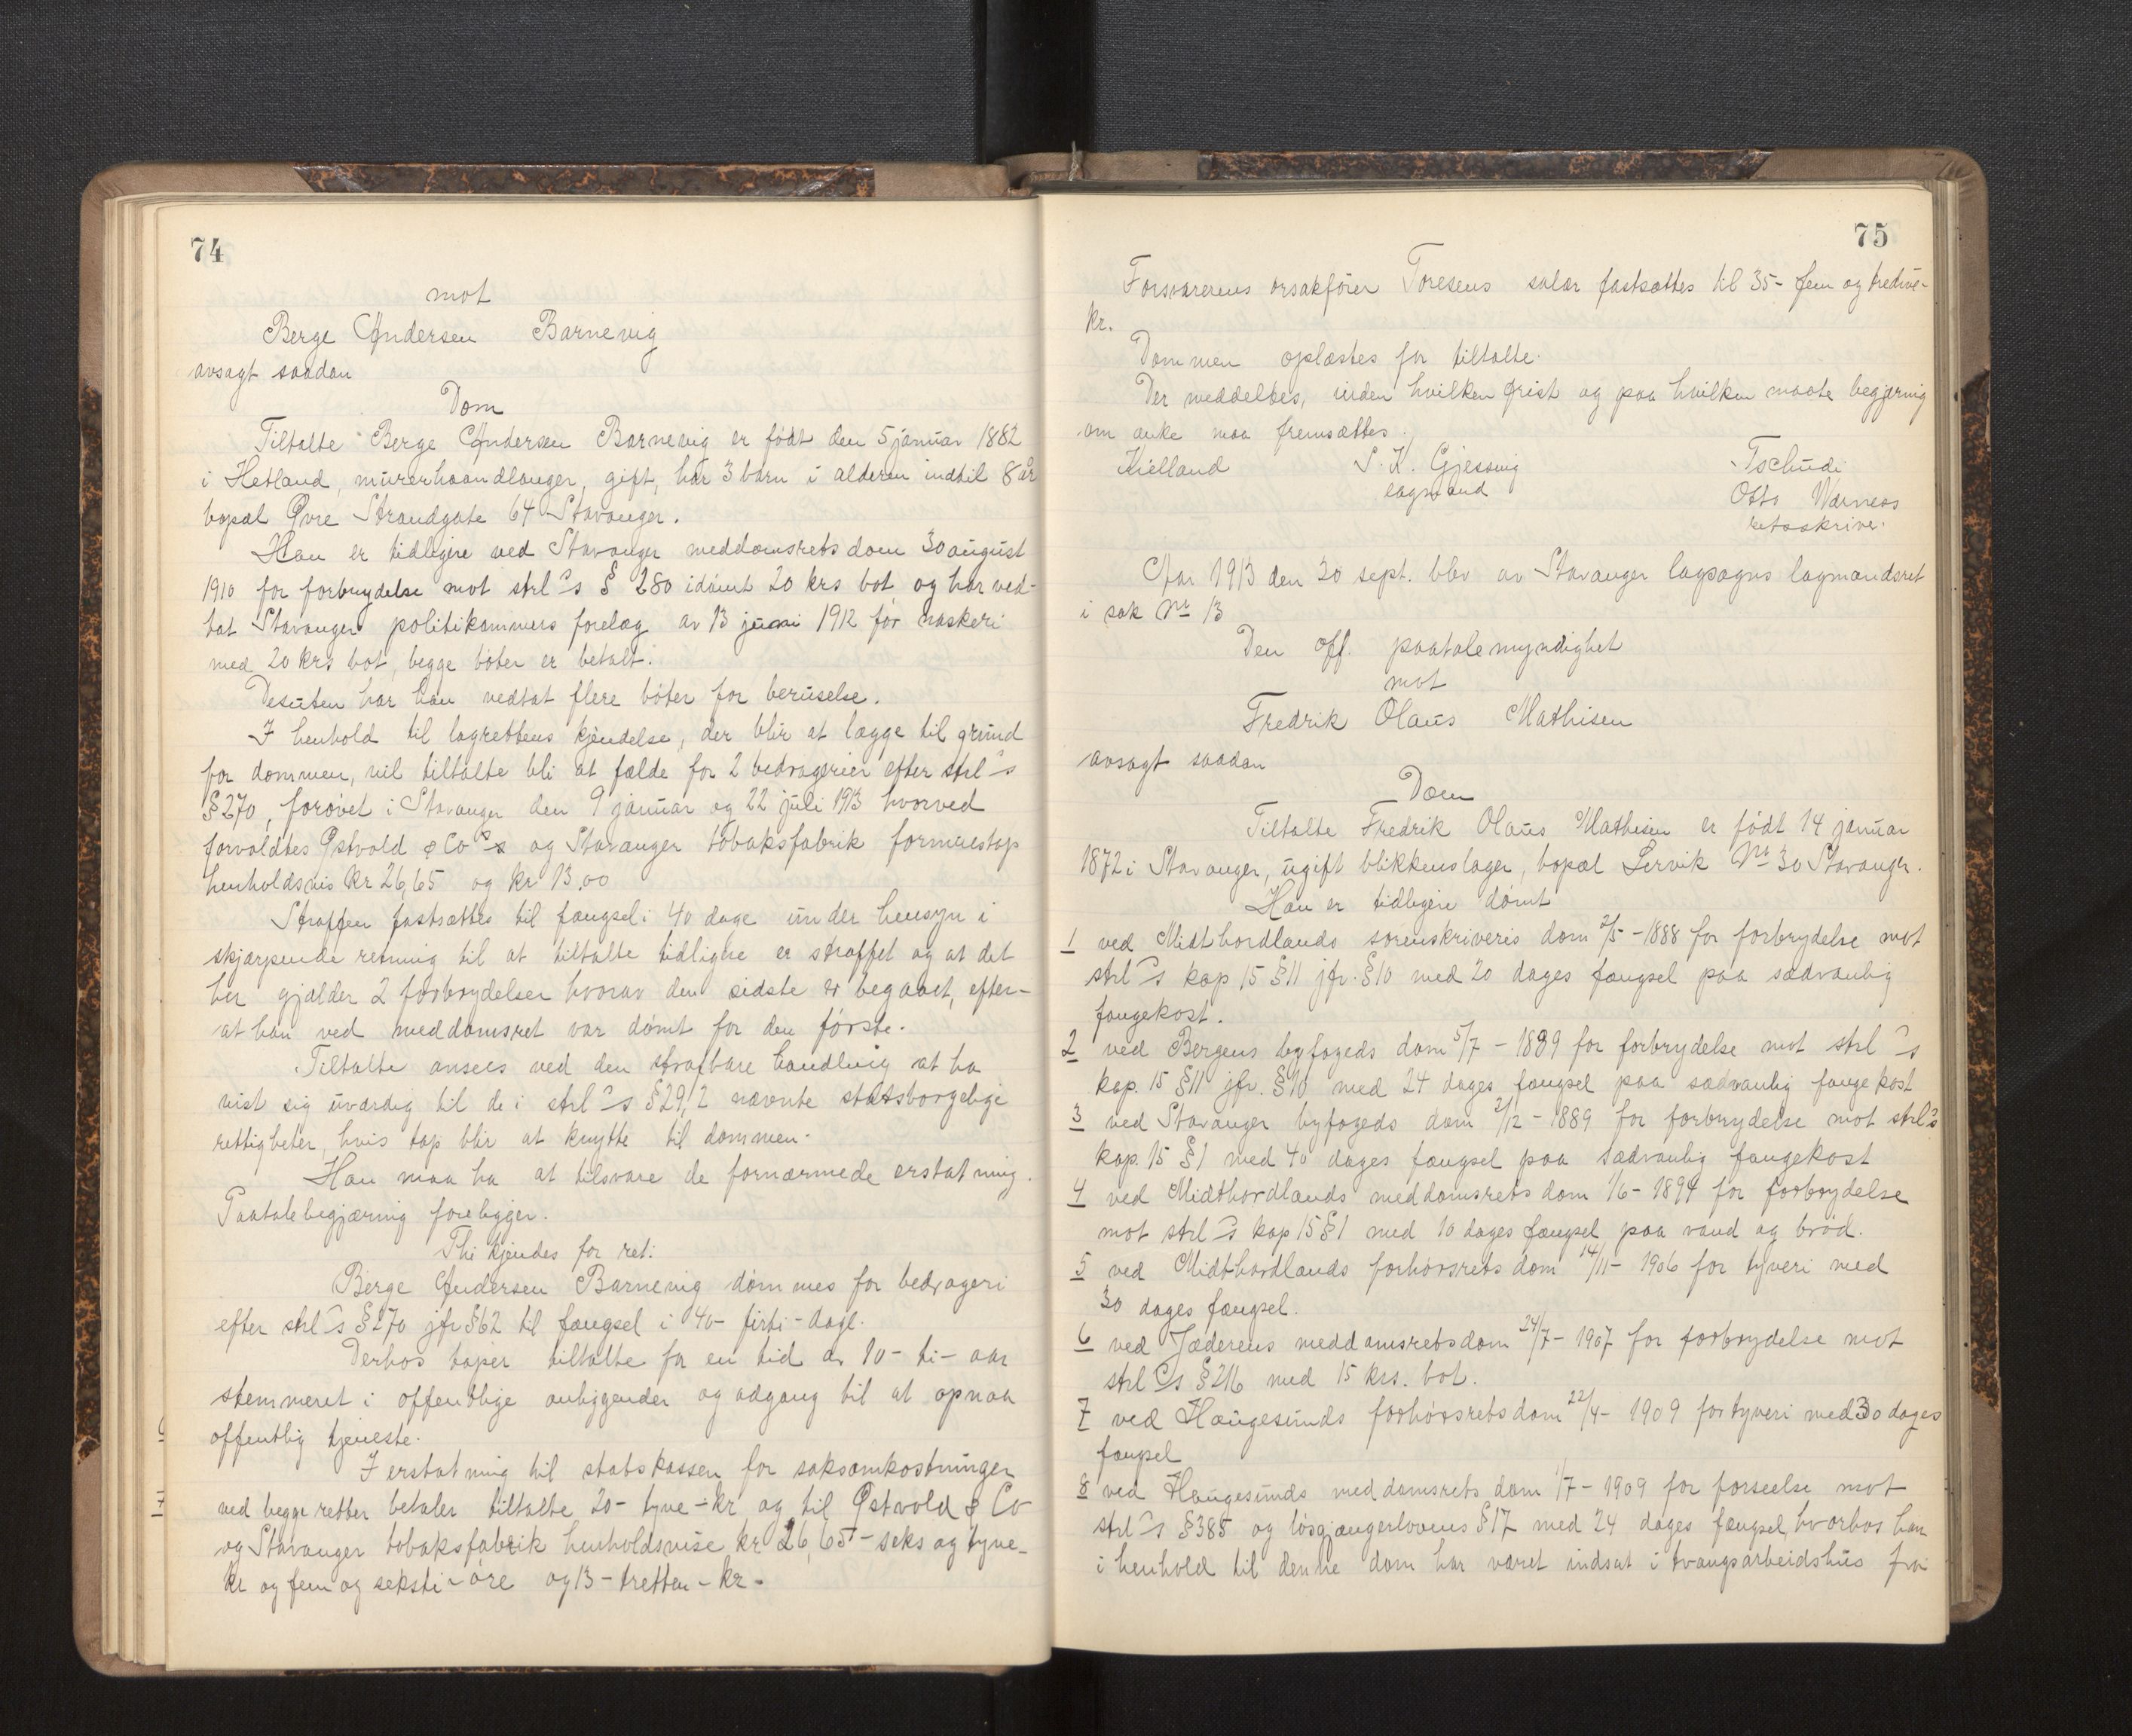 74
mot
Berge Andersen Barnevig
avsagt saadan
Dom
Tiltalte Berge Andersen Barnevig er født den 5 januar 1882
i Hetland, murerhaandlanger, gift, har 3 barn i alderen indtil 8 år
bopæl Øvre Strandgate 64 Stavanger.
Han er tidligere ved Stavanger meddomsrets dom 30 august
1910 for forbrydelse mot strl's § 280 idømt 20 krs bot og har ved-
tat Stavanger politikammers forelæg av 13 juni 1912 for naskeri
med 20 krs bot, begge bøter er betalt.
Desuten har han vedtat flere bøter for beruselse.
I henhold til lagrettens kjendelse, der blir at lægge til grund
for dommen, vil tiltalte bli at fælde for 2 bedragerier efter strl's
§ 270, forøvet i Stavanger den 9 januar og 22 juli 1913 hvorved
forvoldtes Østvold & Co's og Stavanger tobaksfabrik formuestap
henholdsvis kr 26,65 og kr 13,00
Straffen fastsættes til fængsel i 40 dage under hensyn i
skjærpende retning til at tiltalte tidligere er straffet og at det
her gjælder 2 forbrydelser hvorav den sidste er begaaet, efter-
at han ved meddomsret var dømt for den første.
Tiltalte ansees ved den strafbare handling at ha
vist sig uværdig til de i strl's § 29,2 nævnte statsborgelige
rettigheter, hvis tap blir at knytte til dommen.
Han maa ha at tilsvare de fornærmede erstatning.
Paatalebegjæring foreligger.
Thi kjendes for ret:
Berge Andersen Barnevig dømmes for bedrageri
efter strl's § 270 jfr § 62 til fængsel i 40- firti- dage.
Derhos taper tiltalte for en tid av 10- ti- aar
stemmeret i offentlige anliggender og adgang til at opnaa
offentlig tjeneste.
I erstatning til statskassen for saksomkostninger
ved begge retter betaler tiltalte 20- tyve- kr og til Østvold & Co
og Stavanger tobaksfabrik henholdsvise kr 26,65 - seks og tyve-
kr og fem og seksti- øre og 13- tretten- kr.
75
Forsvarerens orsakfører Toresens salær fastsættes til 35- fem og tredive-
kr.
Dommen oplæstes for tiltalte.
Der meddeltes, inden hvilken frist og paa hvilken maate begjæring
om anke maa fremsættes.
Kielland S. K. Gjessing Tschudi
lagmand Otto Warness
retsskriver.
Aar 1913 den 30 sept. blev av Stavanger lagsogns lagmandsret
i sak Nr 13
Den off. paatalemyndighet
mot
Fredrik Olaus Mathisen
avsagt saadan
Dom
Tiltalte Fredrik Olaus Mathisen er født 14 januar
1872 i Stavanger, ugift blikkenslager, bopæl Lervik Nr 30 Stavanger.
Han er tidligere dømt
1 ved Midthordlands sorenskriveris dom 2/5 - 1888 for forbrydelse mot
strl's kap 15 § 11 jfr. § 10 med 20 dages fængsel paa sædvanlig
fangekost.
2 ved Bergens byfogeds dom 5/7 - 1889 for forbrydelse mot strl's
kap. 15 § 11 jfr. § 10 med 24 dages fængsel paa sædvanlig fangekost
3 ved Stavanger byfogeds dom 2/12 - 1889 for forbrydelse mot strl's
kap. 15 § 1 med 40 dages fængsel paa sædvanlig fangekost
4 ved Midthordlands meddomsrets dom 1/6 - 1894 for forbrydelse
mot strl's kap 15 § 1 med 10 dages fængsel paa vand og brød.
5 ved Midthordlands forhørsrets dom 14/11 - 1906 for tyveri med
30 dages fængsel.
6 ved Jæderens meddomsrets dom 24/7 - 1907 for forbrydelse mot
strl's § 216 med 15 krs. bot.
7 ved Haugesunds forhørsrets dom 22/4 - 1909 for tyveri med 30 dages
fængsel
8 ved Haugesunds meddomsrets dom 1/7 - 1909 for forseelse mot
strl's § 385 og løsgjængerlovens § 17 med 24 dages fængsel, hvorhos han
i henhold til denne dom har været indsat i tvangsarbeidshus fra